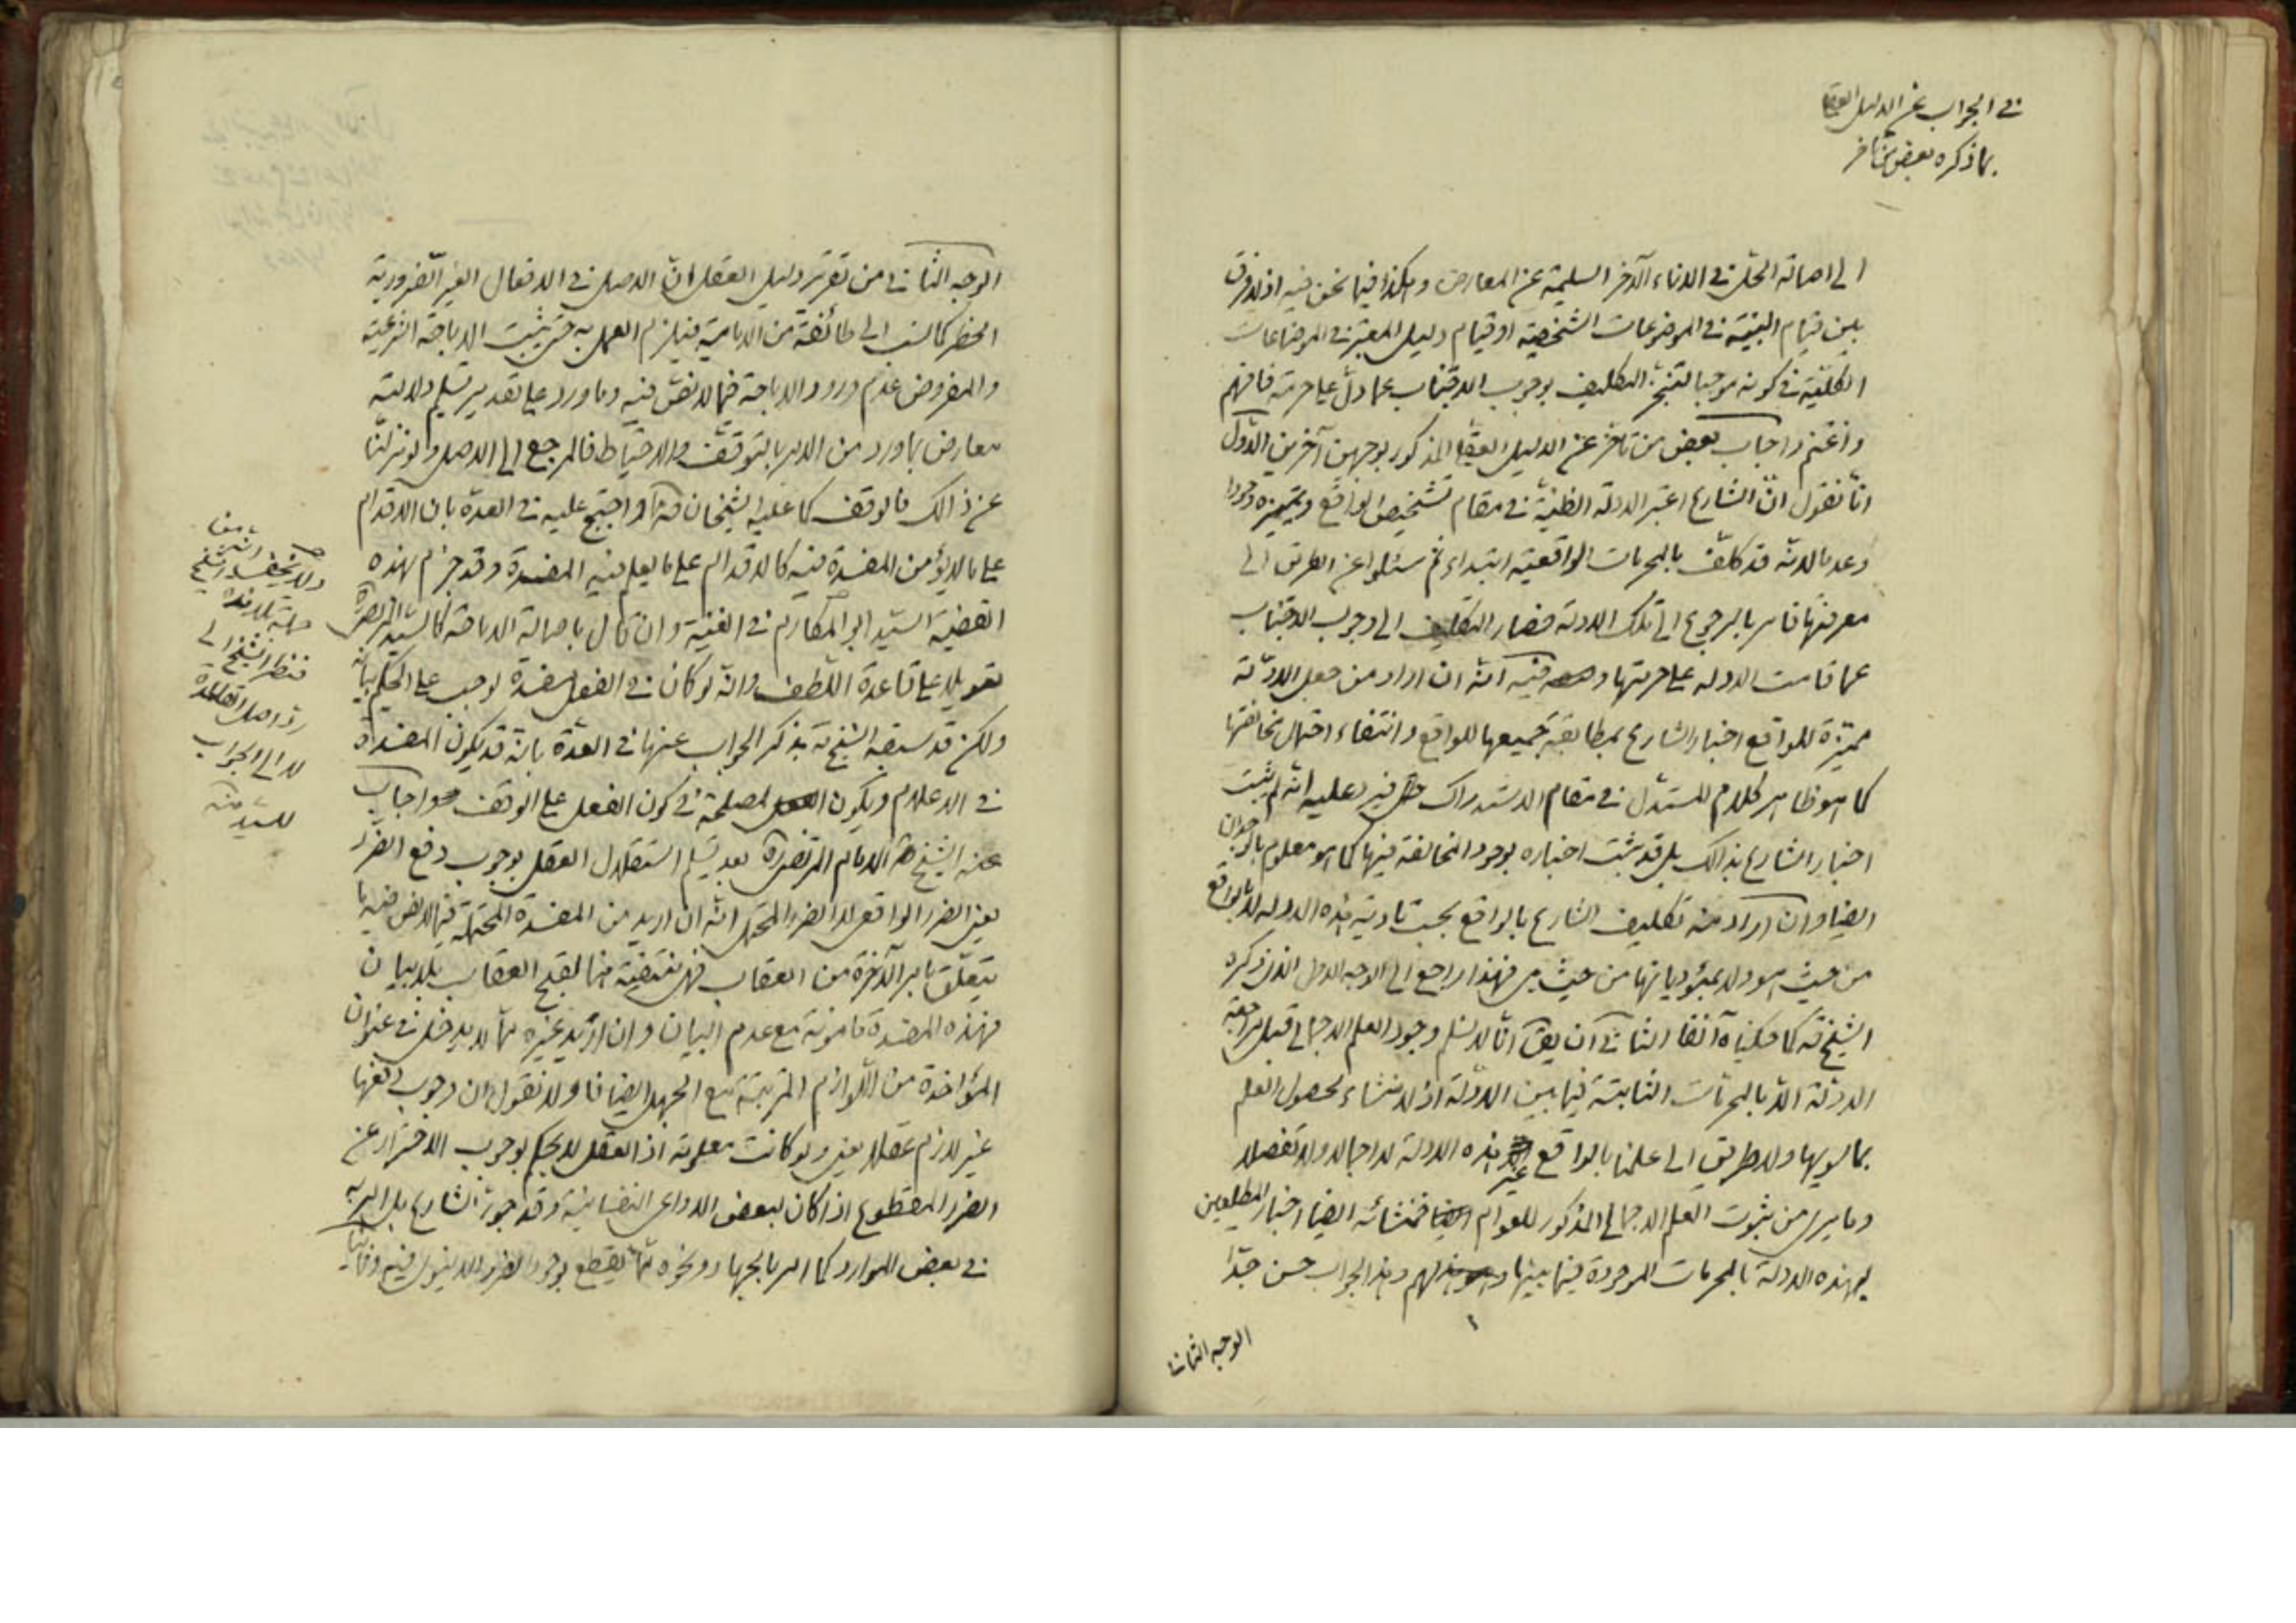 في الجواب عن الدليل العقلي
بما ذكره بعض من تأخر
الى اصالة الحل في الاناء الآخر السليمة عن المعارض وهكذا فيما نحن فيه اذ لا فرق
بين قيام البينة في الموضوعات الشخصية او قيام دليل المعتبر في الموضاعات
الكلية في كونه موجبا لتنجز التكليف بوجوب الاجتناب عما دل على حرمته فافهم
واغتنم واجاب بعض من تأخر عن الدليل العقلي المذكور بوجهين آخرين الاول
انا نقول ان الشارع اعتبر الادلة الظنية في مقام تشخيص الواقع وتميزه وجودا
وعدما لانه قد كلف بالمحرمات الواقعية ابتداء ثم سئلوا عن الطريق الى
معرفتها فامر بالرجوع الى تلك الادلة فصار التكليف الى وجوب الاجتناب
عما قامت الادلة على حرمتها وفيه انه ان اراد من جعل الادلة
مميزة للواقع اخبار الشارع بمطابقة جميعها للواقع وانتفاء احتمال مخالفتها
كما هو ظاهر كلام المستدل في مقام الاستدراك فيرد عليه انه لم يثبت
اخبار الشارع بذالك بل قد يثبت اخباره بوجود المخالفة فيها كما هو معلوم بالوجدان
ايضا وان اراد منه تكليف الشارع بالواقع بحسب تادية هذه الادلة لا بالواقع
من حيث هو ولا بمؤدياتها من حيث هي فهذا راجع الى الوجه الاول الذي ذكره
الشيخ قه كما حكيناه آنفا الثاني ان يق انا لا نسلم وجود العلم الاجمالي قبل مراجعة
الادلة الا بالمحرمات الثابتة فيما بين الادلة اذ لا منشاء لحصول العلم
بما سويها ولا طريق الى علمنا بالواقع غير هذه الادلة لا اجمالا ولا تفصيلا
وما يرى من ثبوت العلم الاجمالي المذكور للعوام فمنشائه ايضا اخبار المطلعين
بهذه الادلة بالمحرمات الموجودة فيما بينها لهم وهذا الجواب حسن جدا
الوجه الثاني
الوجه الثاني من تقرير دليل العقل ان الاصل في الافعال الغير الضرورية
الحظر كما نسب الى طائفة من الامامية فيلزم العمل به حتى يثبت الاباحة الشرعية
والمفروض عدم ورود الاباحة فيما لا نص فيه وما ورد على تقدير تسليم دلالته
معارض بما ورد من الامر بالتوقف والاحتياط فالمرجع الى الاصل ولو تنزلنا
عن ذالك فالوقف كما عليه الشيخان قه واحتج عليه في العدة بان الاقدام
على ما لا يؤمن المفسدة فيه كالاقدام على ما يعلم فيه المفسدة وقد جزم بهذه
القضية السيد ابو المكارم في الغنية وان قال باصالة الاباحة كالسيد المرتضى ره
تعويلا على قاعدة اللطف وانه لو كان في الفعل مفسدة لوجب على الحكيم بيانه
ولكن قد سبقه الشيخ قه بذكر الجواب عنها في العدة بانه قد يكون المفسدة
في الاعلام ويكون المصلحة في كون الفعل على الوقف واجاب
عنه الشيخ قه الامام المرتضى ره بعد تسليم استقلال العقل بوجوب دفع الضرر
يعني الضرر الواقعي لا الضرر المحتمل انه ان اريد من المفسدة المحتملة فيما لا نص فيه ما
يتعلق بامر الآخرة من العقاب فهي منتفية هنا لقبح العقاب بلا بيان
فهذه المفسدة مامونة مع عدم البيان وان اريد غيره مما لا يدخل في عنوان
المؤاخذة من اللوازم المترتبة مع الجهل ايضا فاولا نقول ان وجوب دفعها
غير لازم عقلا يعني ولو كانت معلومة اذ العقل لا يحكم بوجوب الاحتراز عن
الضرر المقطوع اذا كان لبعض الدواعي النفسانية وقد جوز الشارع بل امر به
في بعض الموارد كما امر بالجهاد ونحوه مما يقطع بوجود الضرر الدنيوي فيه وثانيا
ولا يخفى ان الشيخ
فنظر الشيخ الى
رد اصل القاعدة
لا الى الجواب
للسيد منه